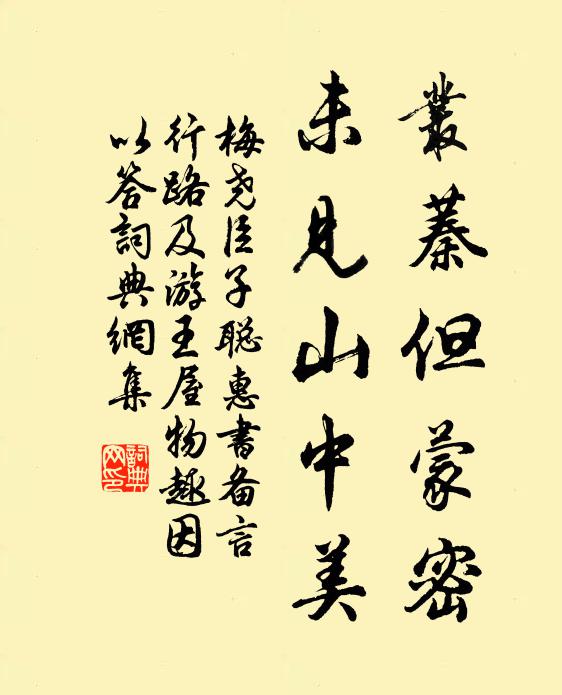 叢蓁但蒙密
未見山中美
梅尧臣子聪惠書备言
行路及游王屋物趣因
以答詞典網集
詞典网印